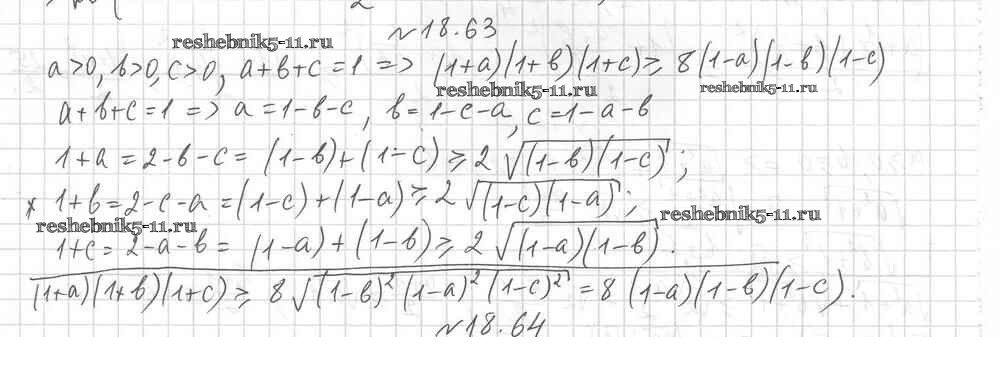 №18.63
reshebnik5-11.ru
a>0, b>0, c>0, a+b+c=1 => (1+a)(1+b)(1+c) ≥ 8(1-a)(1-b)(1-c)
reshebnik5-11.ru reshebnik5-11.ru
a+b+c=1 => a=1-b-c, b=1-c-a, c=1-a-b
1+a = 2-b-c = (1-b)+(1-c) ≥ 2√((1-b)(1-c));
× 1+b = 2-c-a = (1-c)+(1-a) ≥ 2√((1-c)(1-a));
reshebnik5-11.ru reshebnik5-11.ru
1+c = 2-a-b = (1-a)+(1-b) ≥ 2√((1-a)(1-b)).
(1+a)(1+b)(1+c) ≥ 8√((1-b)²(1-a)²(1-c)²) = 8(1-a)(1-b)(1-c).
№18.64